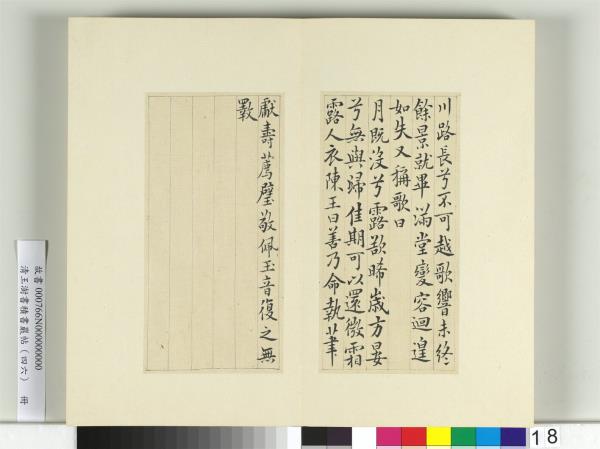 川路長兮不可越歌響未終
餘景就畢滿堂變容迴遑
如失又稱歌曰
月既沒兮露欲晞歲方晏
兮無與歸佳期可以還微霜
霑人衣陳王曰善乃命執事
獻壽薦璧敬佩玉音復之無
斁
故書 000766N000000000
清王澍書積書巖帖(四六) 冊
18